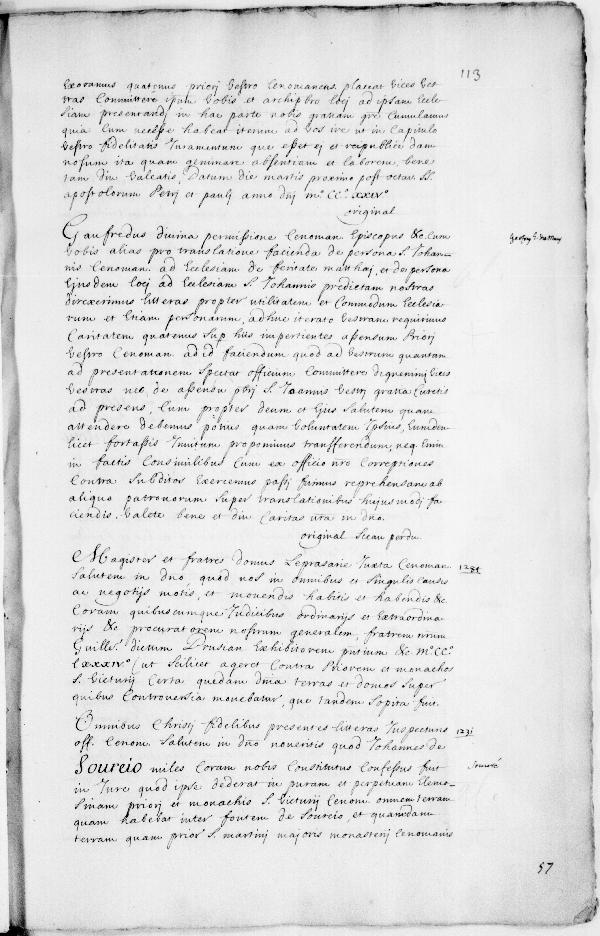 113
Exoramus quatenus priorj vestro Cenomanens. placeat vices ves-
tras Committere ipsum vobis et archipbro locj ad ipsam Eccle-
siam presentandj in hac parte nobis gratiam gre Cumulamus
quia Cum necesse habeat iterum ad vos ire ut in Capitulo
vestro fidelitatis Juramentum que esset ej et reipublice dam-
nosum ita quam geminare absentiam et laborem, bene
tam diu valeatis, Datum die martis proximo post octav. SS.
apostolorum Petrj et paulj anno dnj m.º CC.º XXIV.º
original
Gaufredus divina permissione Cenoman Episcopus &c. Cum
vobis alias pro translatione facienda de persona S. Johan-
nis Cenoman. ad Ecclesiam de feritate matthaj, et de persona
Ejusdem locj ad Ecclesiam S. Johannis predictam nostras
direxerimus litteras propter utilitatem et Commodum Ecclesia-
rum et Etiam personarum, adhuc iterato vestram requirimus
Caritatem quatenus sup hiis impertientes assensum Priorj
vestro Cenoman. ad id faciendum quod ad vestrum quantum
ad presentationem spectat officium Committere dignemini vices
vestras nec de assensu pbrj S. Joannis vestrj gratia Curetis
ad presens, Cum propter deum et Ejus salutem quam
attendere debemus potius quam voluntatem Ipsius, Eumdem
licet fortassis Invitum proponimus transfferendum, neq. Enim
in factis Consimilibus Cum ex officio nro Correptiones
Contra subditos Exercemus passj fuimus reprehensam ab
aliquo patronorum super translationibus hujusmodj fa-
ciendis. Valete bene et diu Caritas vra in dno.
original Sceau perdu.
Magister et fratres domus Leprosarie Juxta Cenoman.
Salutem in dno, quod nos in omnibus et singulis Causis
ac negotijs motis, et movendis habitis et habendis &c.
Coram quibuscumque Judicibus ordinarijs et Extraordina-
rijs &c procuratorem nostrum generalem, fratrem nrum
Guill. dictum Drusian Exhibitorem pntium &c. M.º CC.º
LXXXIV.º (ut scilicet ageret Contra Priorem et monachos
S. Victurij Certa quedam dnia terras et domos super
quibus Controversia movebatur, que tandem sopita fuit.
1284
Omnibus Christj fidelibus presentes litteras Inspecturis
off. Cenom. Salutem in dno noveritis quod Johannes de
Sourcio miles Coram nobis Constitutus Confessus fuit
in Jure quod ipse dederat in puram et perpetuam Elemo-
sinam priorj et monachis S. Victurij Cenom omnem terram
quam habebat inter fontem de Sourcio, et quamdam
terram quam prior S. martinj majoris monasterij Cenomanis
1231
57